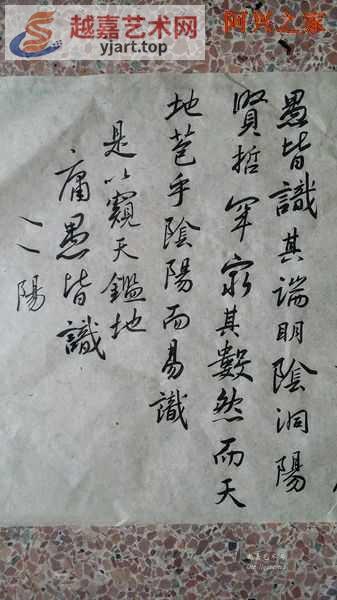 越嘉艺术网
yjart.top
阿兴之家
愚皆識其端明陰洞陽
賢哲罕窮其數然而天
地苞乎陰陽而易識
是以窺天鑑地
庸愚皆識
二陽